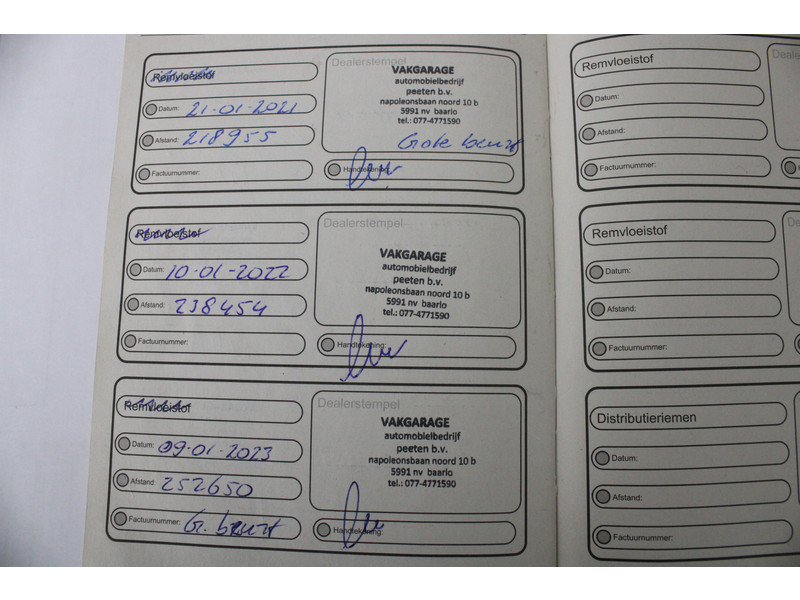 Remvloeistof
Datum: 21-01-2021
Afstand: 218955
Factuurnummer:
Dealerstempel
VAKGARAGE
automobielbedrijf
peeten b.v.
napoleonsbaan noord 10 b
5991 nv baarlo
tel.: 077-4771590
Grote beurt
Handtekening:
Remvloeistof
Datum: 10-01-2022
Afstand: 238454
Factuurnummer:
Dealerstempel
VAKGARAGE
automobielbedrijf
peeten b.v.
napoleonsbaan noord 10 b
5991 nv baarlo
tel.: 077-4771590
Handtekening:
Remvloeistof
Datum: 09-01-2023
Afstand: 252650
Factuurnummer: G. beurt
Dealerstempel
VAKGARAGE
automobielbedrijf
peeten b.v.
napoleonsbaan noord 10 b
5991 nv baarlo
tel.: 077-4771590
Handtekening:
Remvloeistof
Datum:
Afstand:
Factuurnummer:
Remvloeistof
Datum:
Afstand:
Factuurnummer:
Distributieriemen
Datum:
Afstand:
Factuurnummer: